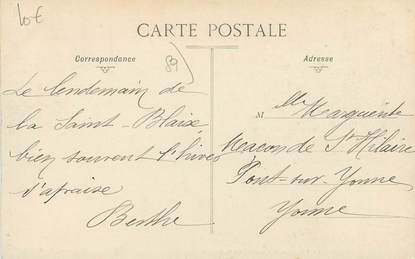 lot
CARTE POSTALE
Correspondance
89
Adresse
Le lendemain de
la Saint-Blaise,
bien souvent l'hiver
s'apaise
Berthe
M Elle Marguerite
de St Hilaire
Pont-sur-Yonne
Yonne